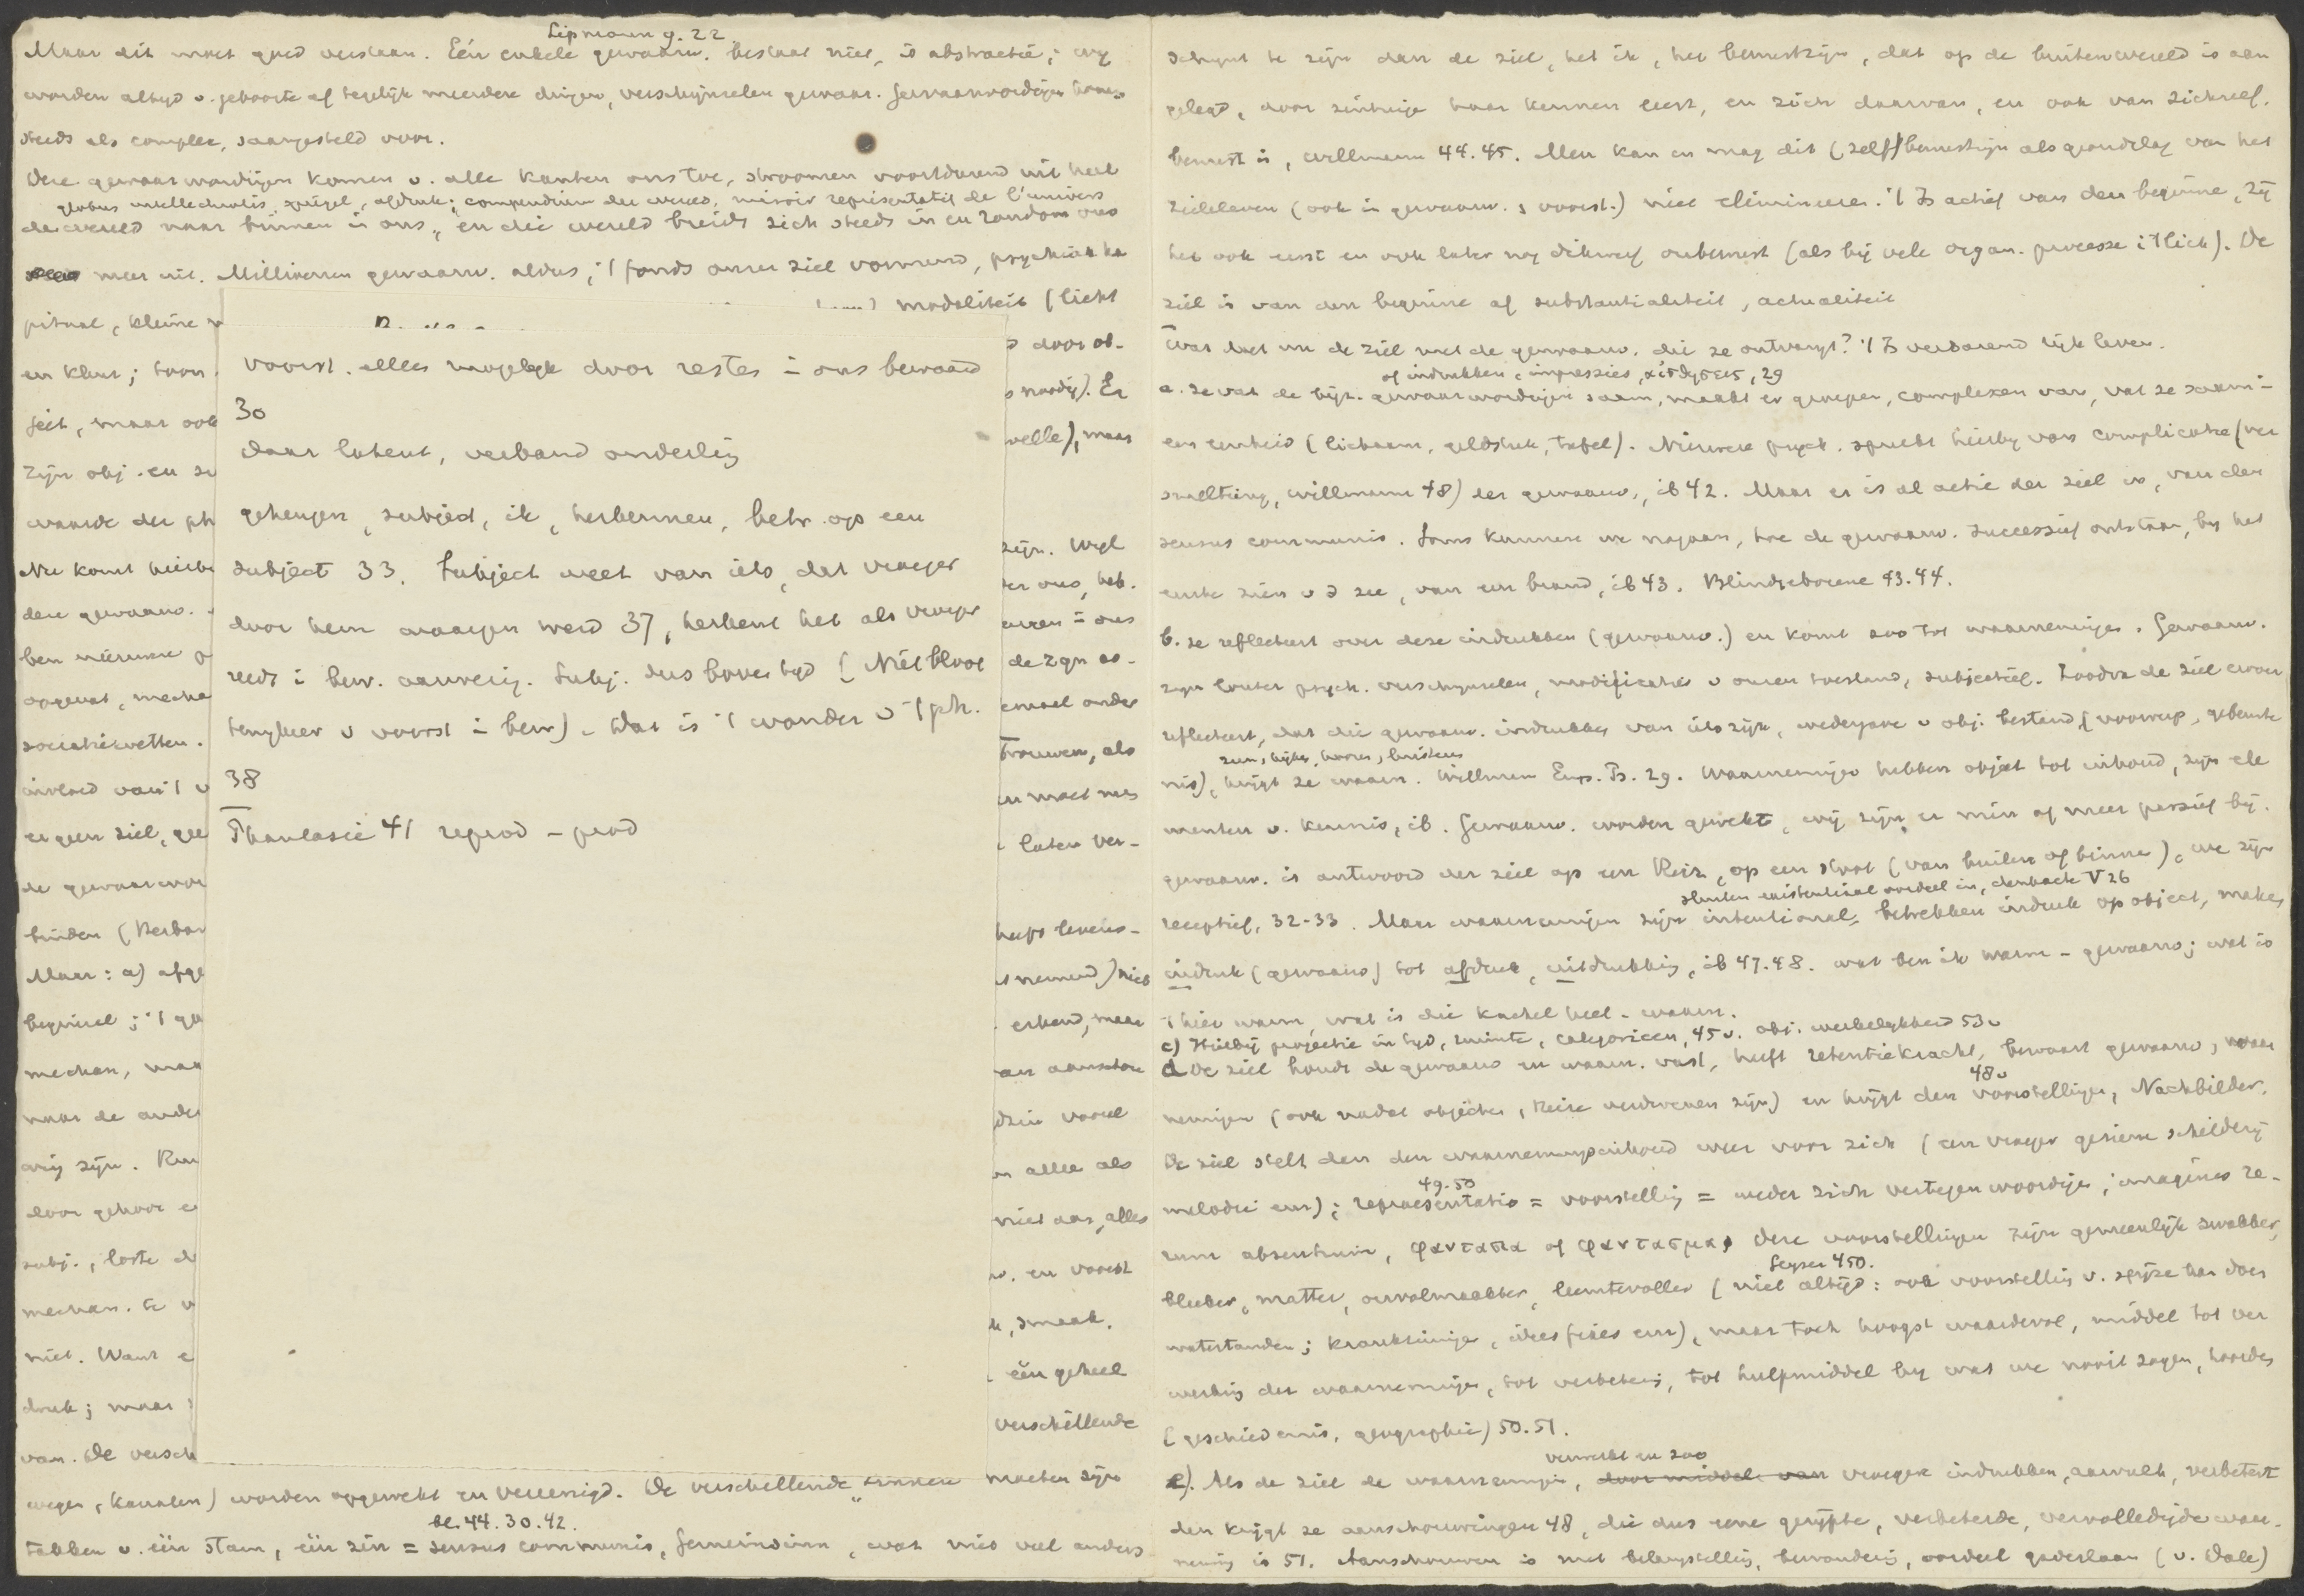 Lipmann g. 22
Maar dit moet goed verstaan. Eén enkele gewaarw. bestaat niet, is abstractie; wy
worden altyd v. geboorte af tegelyk meerdere dingen, verschynselen gewaar. Gewaarwordingen komen
steeds als complex, saamgesteld voor.
Deze gewaarwordingen komen v. alle kanten ons toe, stroomen voortdurend uit heel
globus intellectualis, spiegel, afdruk; compendium der wereld, miroir représentatif de l'univers
de wereld naar binnen in ons, en die wereld breidt zich steeds in en rondom ons
meer uit. Millioenen gewaarw. aldus, 't fonds onzer ziel vormend, psychisch ka
pitaal, kleine
modaliteit (licht
en kleur; toon
door ob-
feit, maar ook
noodig). Er
zijn obj. en su
velle), maar
waarde der ph
Nu komt hierbi
zijn. Wyl
dere gewaarw.
ons, heb.
ben nieuwere p
in ons
opgevat, mecha
de zgn as-
sociatiewetten.
emael onder
invloed van 't v
trouwen, als
er geen ziel, gee
en moet men
de gewaarwor
laten ver-
binden (Herbar
levens-
Maar: a) afge
nemend) niet
beginsel; 't ge
erkend, maar
mechan, maa
an aanschou
naar de ander
vooral
wij zijn. Kun
allee als
door gehoor e
niet aan, alles
subj., losse d
en voorst
mechan. te v
smaak,
niet. Want e
één geheel
druk; maar
verschillende
van. De versch
wegen, kanalen) worden opgewekt en vereenigd. De verschillende zinnen moeten zijn
bl. 44. 30. 42.
takken v. één stam, één zin = sensus communis, Gemeinsinn, wat niet veel anders
voorst. alles mogelyk door restes in ons bewaard
30
daar latent, verband onderling
geheugen, subject, ik, herkennen, betr. op een
subject 33. Subject weet van iets, dat vroeger
door hem waargen werd 37, herkent het als vroeger
reeds in bew. aanwezig. Subj. dus boven tyd (Niet bloot
terugkeer v voorst in bew). Dat is 't wonder v 't ph.
38
Phantasie 41 reprod – prod
schynt te zijn dan de ziel, het ik, het bewustzijn, dat op de buitenwereld is aan
gelegd, door zintuige haar kennen leert, en zich daarvan, en ook van zichzelf,
bewust is, Willmann 44. 45. Men kan en mag dit (zelf)bewustzijn als grondslag van het
zieleleven (ook in gewaarw. & voorst.) niet elimineeren. 't Is actief van den beginne, zij
het ook eerst en ook later nog dikwerf onbewust (als bij vele organ. processe i 't lich). De
ziel is van den beginne af substantialiteit, actualiteit
Wat doet nu de ziel met de gewaarw. die ze ontvangt? 't Is verbazend rijk leven.
of indrukken, impressies, αἰσθησεις, 29
a. ze vat de bijz. gewaarwordingen saam, maakt er groepen, complexen van, vat ze saam in
een eenheid (lichaam, geldstuk, tafel). Nieuwere psych. spreekt hierby van complicatie (ver
smelting, Willmann 48) der gewaarw., ib 42. Maar er is al actie der ziel in, van den
sensus communis. Soms kunnen we nagaan, hoe de gewaarw. successief ontstaan, by het
eerste zien v d zee, van een brand, ib 43. Blindgeborene 43. 44.
b. ze reflecteert over deze indrukken (gewaarw.) en komt zoo tot waarnemingen. Gewaarw.
zyn louter psych. verschynselen, modificaties v onzen toestand, subjectief. Zoodra de ziel erover
reflecteert, dat die gewaarw. indrukken van iets zijn, wedergave v obj. bestand (voorwerp, gebeurte
zien, kijken, hooren, luisteren
nis), krijgt ze waarn. Willmann Emp. Ps. 29. Waarnemingen hebben object tot inhoud, zijn ele
menten v. kennis, ib. Gewaarw. worden gewekt, wij zijn er min of meer passief bij.
gewaarw. is antwoord der ziel op een Reiz, op een stoot (van buiten of binnen), we zijn
sluiten existentiaal oordeel in, Hornbach V 26
receptief, 32-33. Maar waarnemingen zijn intentional, betrekken indruk op object, maken
indruk (gewaarw) tot afdruk, uitdrukking, ib 47. 48. wat ben ik warm – gewaarw; wat is
't hier warm, wat is die kachel heet – waarn.
c) Hierbij projectie in tyd, ruimte, categorieen, 45 v. obj. werkelykheid 53 v
d De ziel houdt de gewaarw en waarn. vast, heeft retentiekracht, bewaart gewaarw, waar
48 v
nemingen (ook nadat objecten, Reize verdwenen zijn) en krijgt dan voorstellingen, Nachbilder.
De ziel stelt dan den waarnemingsinhoud weer voor zich (een vroeger geziene schildery
49. 50
melodie enz); repraesentatio = voorstelling = weder zich vertegenwoordigen; imagines re-
rum absentium, φαντασια of φαντασμα. Deze voorstellingen zijn gemeenlijk zwakker,
Geyser 450.
bleeker, matter, onvolmaakter, leemtevoller (niet altijd: ook voorstelling v. spijze kan doen
watertanden; krankzinnige, idées fixes enz), maar toch hoogst waardevol, middel tot ver
werking der waarnemingen, tot verbetering, tot hulpmiddel by wat we nooit zagen, hoorden
(geschiedenis, geographie) 50. 51.
verwerkt en zoo
e). Als de ziel de waarnemingen, door middel van vroegere indrukken, aanvult, verbetert
dan krijgt ze aanschouwingen 48, die dus eene gerijpte, verbeterde, vervolledigde waar-
neming is 51. Aanschouwen is met belangstelling, bewondering, oordeel gadeslaan (v. Dale)